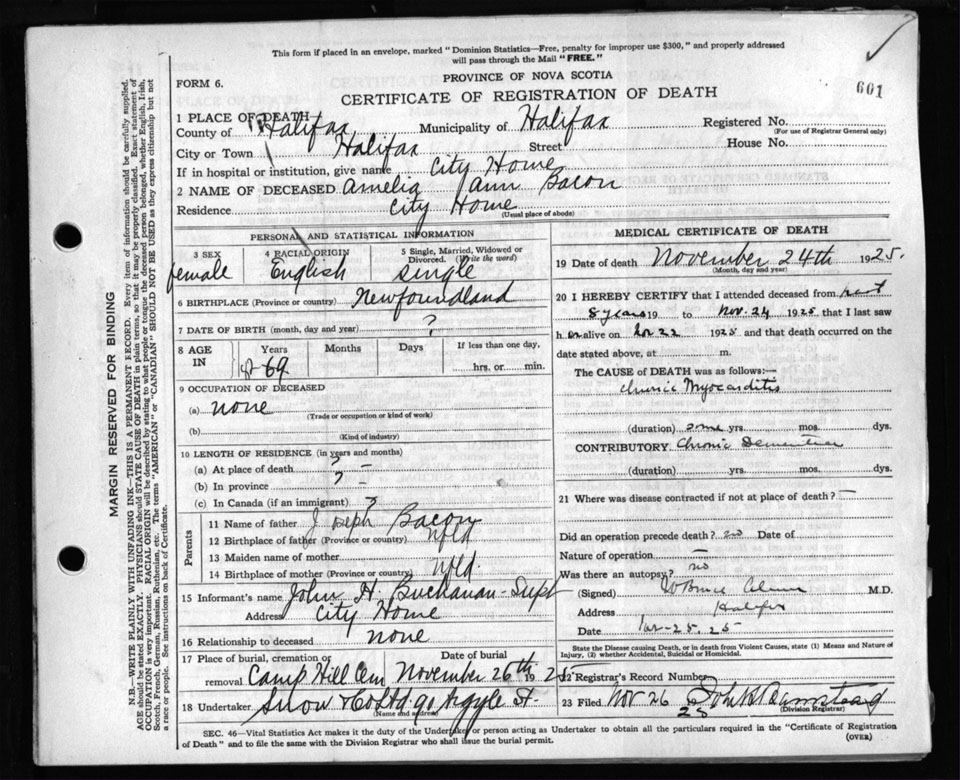 This form if placed in an envelope, marked "Dominion Statistics—Free, penalty for improper use $300," and properly addressed
will pass through the Mail "FREE."
FORM 6.
PROVINCE OF NOVA SCOTIA
CERTIFICATE OF REGISTRATION OF DEATH
601
1 PLACE OF DEATH
County of Halifax Municipality of Halifax Registered No.
(For use of Registrar General only)
City or Town Halifax Street House No.
If in hospital or institution, give name City Home
2 NAME OF DECEASED Amelia Ann Bacon
Residence City Home
(Usual place of abode)
PERSONAL AND STATISTICAL INFORMATION
3 SEX 4 RACIAL ORIGIN 5 Single, Married, Widowed or
Divorced. (Write the word)
female English single
6 BIRTHPLACE (Province or country) Newfoundland
7 DATE OF BIRTH (month, day and year) ?
8 AGE IN Years Months Days If less than one day,
69 hrs. or min.
9 OCCUPATION OF DECEASED
(a) none
(Trade or occupation or kind of work)
(b)
(Kind of industry)
10 LENGTH OF RESIDENCE (in years and months)
(a) At place of death ? –
(b) In province ? –
(c) In Canada (if an immigrant) ?
Parents
11 Name of father Joseph Bacon
12 Birthplace of father (Province or country) Nfld
13 Maiden name of mother
14 Birthplace of mother (Province or country) Nfld.
15 Informant's name John H. Buchanan - Supt
Address City Home
16 Relationship to deceased none
17 Place of burial, cremation or Date of burial
removal Camp Hill Cem November 26th 1925
18 Undertaker Snow & Co Ltd 90 Argyle St.
(Name and address)
MEDICAL CERTIFICATE OF DEATH
19 Date of death November 24th 1925.
(Month, day and year)
20 I HEREBY CERTIFY that I attended deceased from past
8 years 19 to Nov. 24 1925 that I last saw
h er alive on Nov 22 1925 and that death occurred on
date stated above, at m.
The CAUSE of DEATH was as follows:—
Chronic Myocarditis
(duration) some yrs. mos. dys.
CONTRIBUTORY Chronic Dementia
(duration) yrs. mos. dys.
21 Where was disease contracted if not at place of death? —
Did an operation precede death? no Date of
Nature of operation —
Was there an autopsy? no
(Signed) W Bruce M.D.
Address Halifax
Date Nov - 25. 25
State the Disease causing Death, or in death from Violent Causes, state (1) Means and Nature of
Injury, (2) whether Accidental, Suicidal or Homicidal.
22 Registrar's Record Number
23 Filed Nov 26 25
(Division Registrar)
SEC. 46—Vital Statistics Act makes it the duty of the Undertaker or person acting as Undertaker to obtain all the particulars required in the "Certificate of Registration
of Death" and to file the same with the Division Registrar who shall issue the burial permit.
(OVER)
MARGIN RESERVED FOR BINDING
N.B.—WRITE PLAINLY WITH UNFADING INK—THIS IS A PERMANENT RECORD. Every item of information should be carefully supplied.
AGE should be stated EXACTLY. PHYSICIANS should STATE CAUSE OF DEATH in plain terms, so that it may be properly classified. Exact statement of
OCCUPATION is very important. RACIAL ORIGIN will be described by stating to what people or tongue the deceased person belonged, whether English, Irish,
Scotch, French, German, Russian, Ruthenian, etc. The terms "AMERICAN" or "CANADIAN" SHOULD NOT BE USED as they express citizenship but not
a race or people. See instructions on back of Certificate.